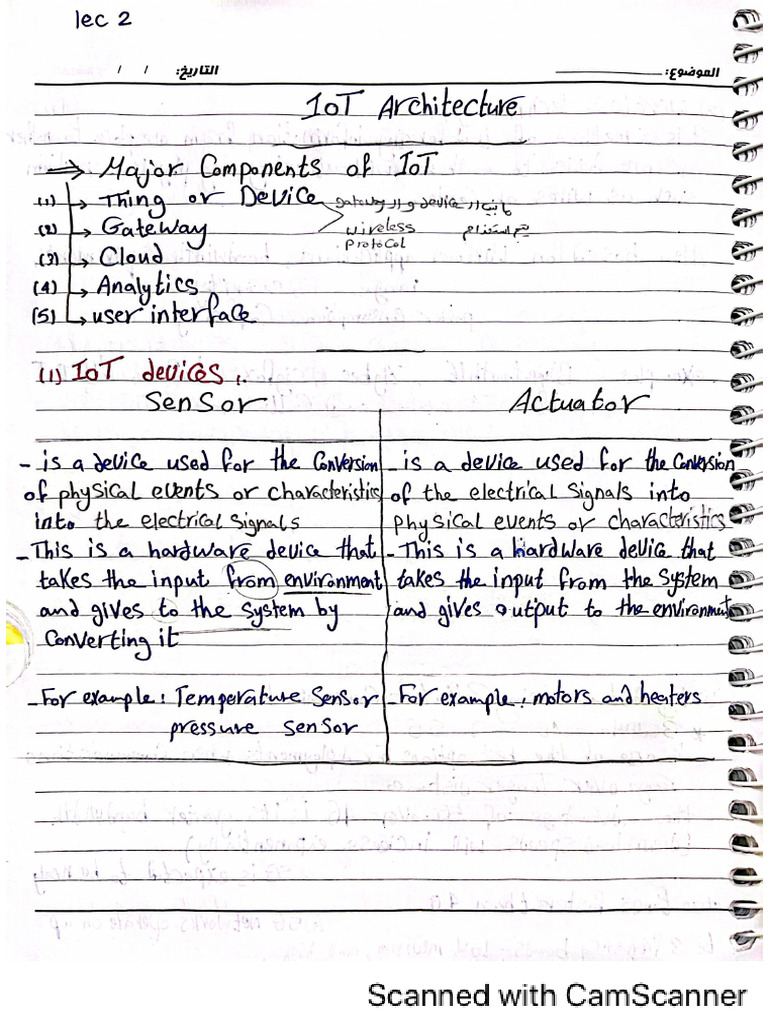 lec 2
الموضوع: التاريخ: / /
IoT Architecture
⇒ Major Components of IoT
(1) → Thing or Device
ما بين ال device وال gateway
يتم استخدام wireless protocol
(2) → Gateway
(3) → Cloud
(4) → Analytics
(5) → user interface
(1) IoT devices :
Sensor
- is a device used for the Conversion
of physical events or characteristics
into the electrical signals
- This is a hardware device that
takes the input from environment
and gives to the system by
Converting it
- For example : Temperature Sensor
pressure sensor
Actuator
- is a device used for the Conversion
of the electrical signals into
physical events or characteristics
- This is a hardware device that
takes the input from the system
and gives output to the environment
- For example : motors and heaters
Scanned with CamScanner